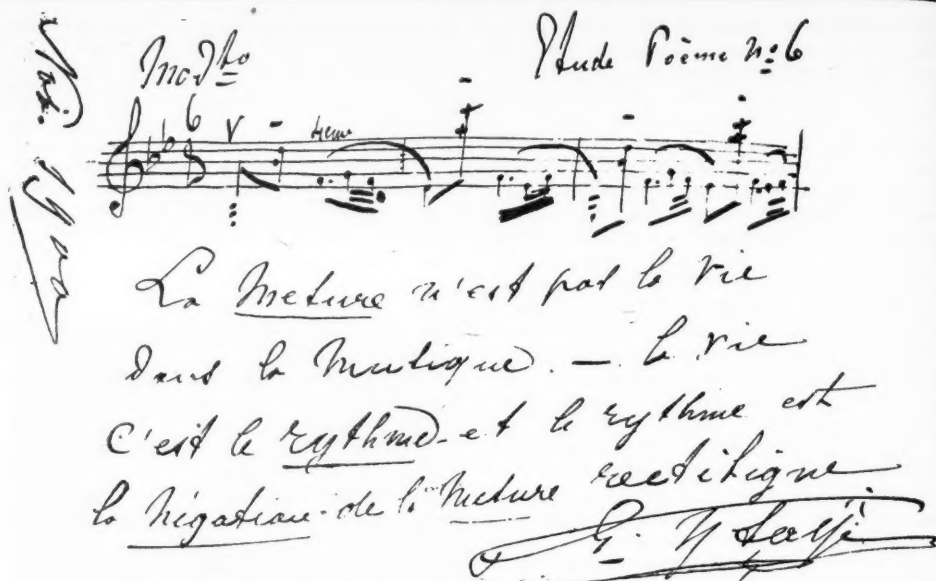 Modto Etude Poème No 6
6
La Mesure n'est pas la vie
dans la Musique. — la vie
c'est le rythme - et le rythme est
la négation de la Mesure rectiligne